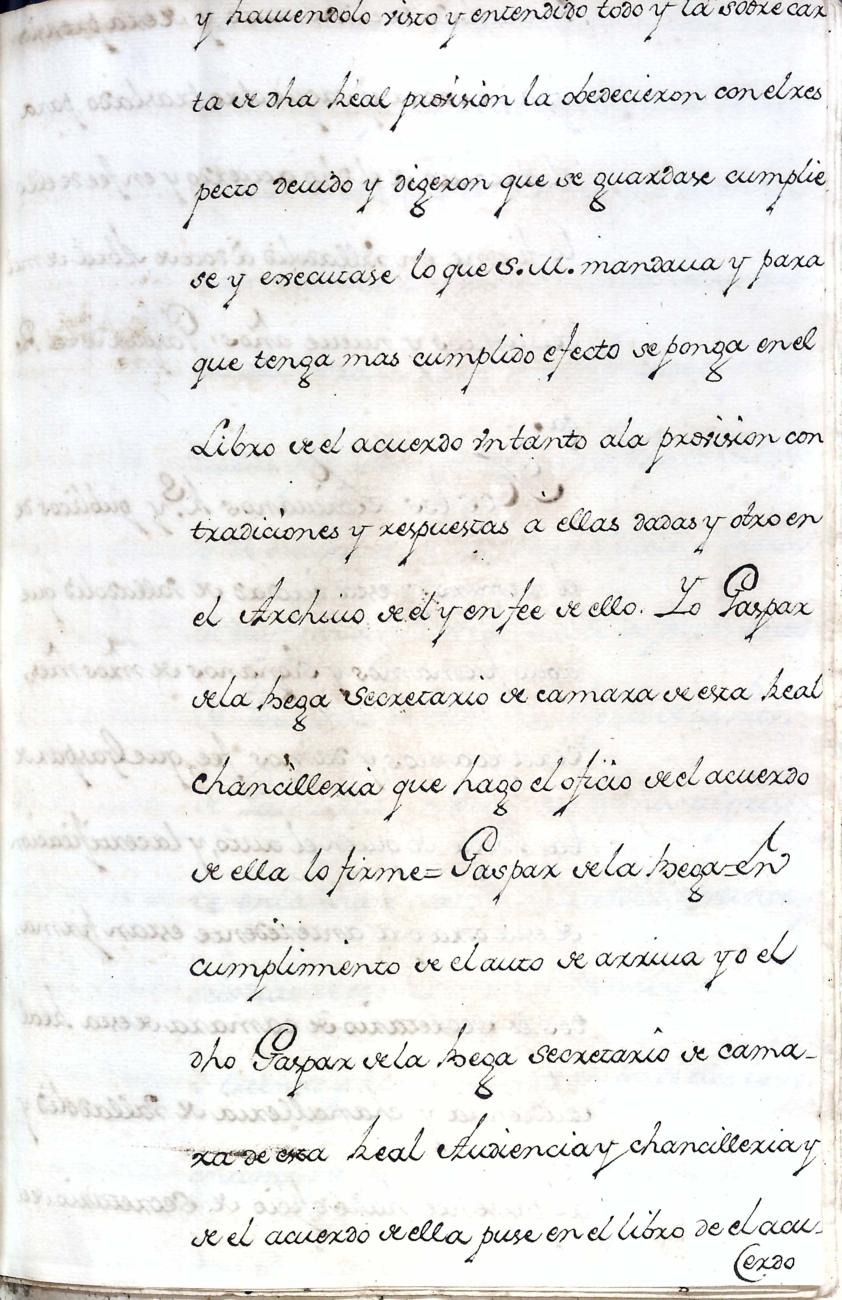 y haviendolo visto y entendido todo y la sobre car
ta de dha Real provision la obedecieron con el res
pecto devido y digeron que se guardase cumplie
se y executase lo que S. M. mandava y para
que tenga mas cumplido efecto se ponga en el
Libro de el acuerdo vn tanto a la provision con
tradiciones y respuestas a ellas dadas y otro en
el Archivo de el y en fee de ello. Yo Gaspar
de la Vega Secretario de camara de esta Real
Chancilleria que hago el oficio de el acuerdo
de ella lo firme = Gaspar de la Vega = En
cumplimiento de el auto de arriva yo el
dho Gaspar de la Vega Secretario de cama-
ra de esta Real Audiencia y chancilleria y
de el acuerdo de ella puse en el libro de el acu-
erdo